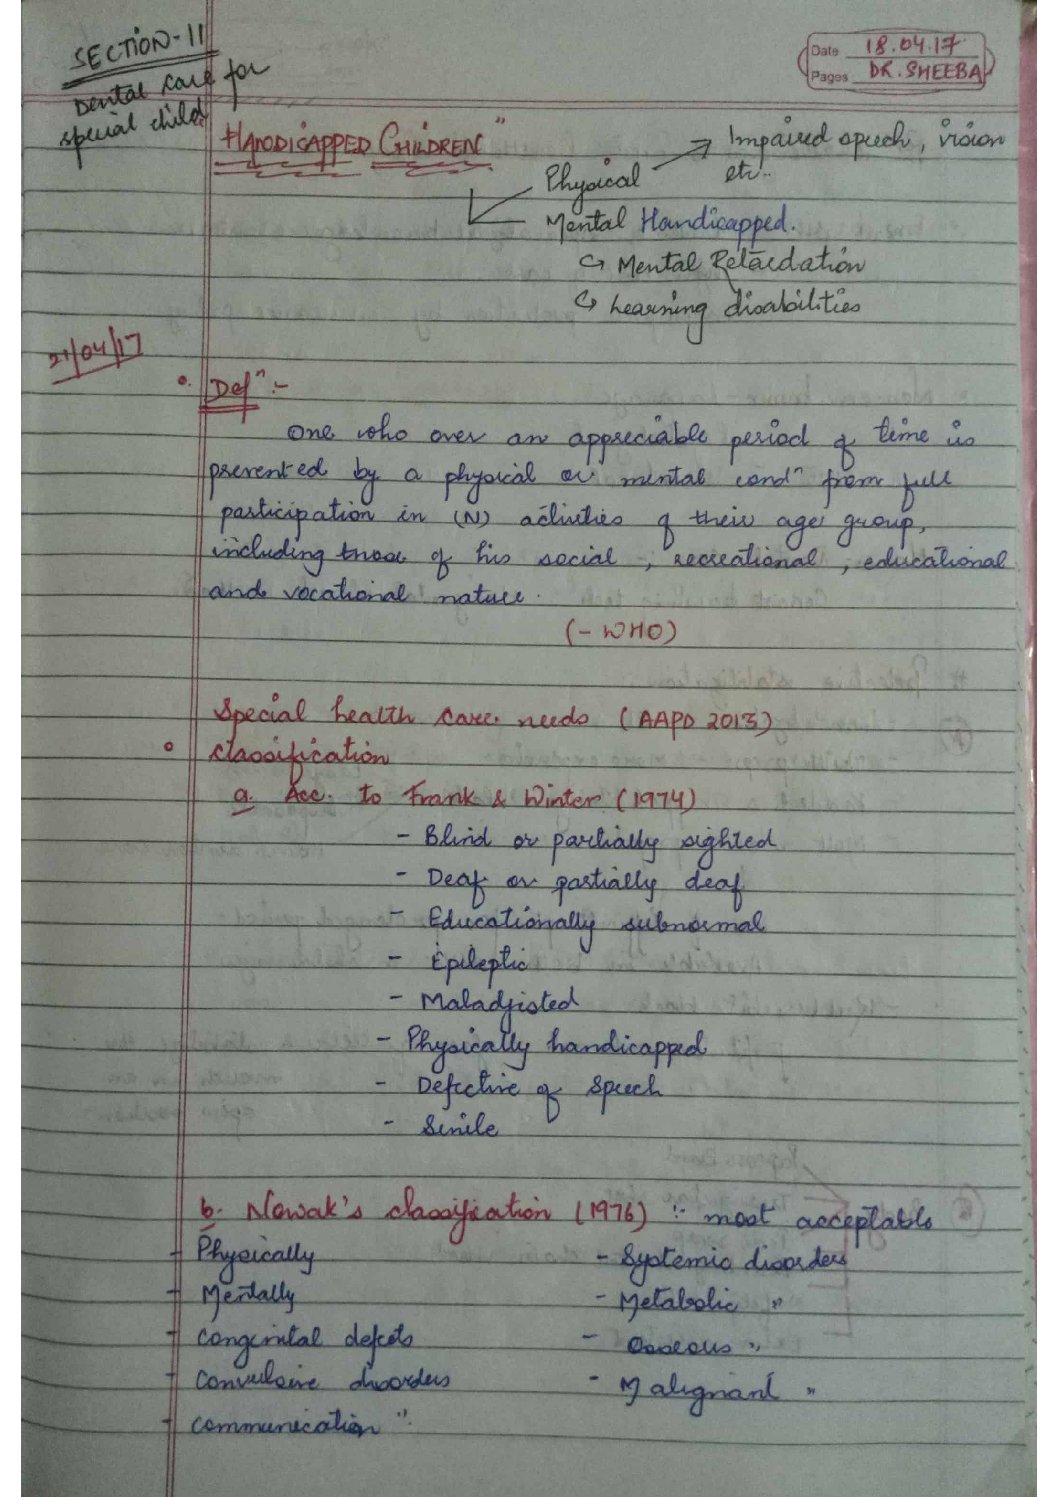 SECTION-11
Dental care for
special child
Date 18.04.17
Pages DR. SHEEBA
"HANDICAPPED CHILDREN"
Physical → Impaired speech, vision
etc..
Mental Handicapped.
↪ Mental Retardation
↪ Learning disabilities
21/04/17
Defⁿ :-
One who over an appreciable period of time is
prevented by a physical or mental condⁿ from full
participation in (N) activities of their age group,
including those of his social, recreational, educational
and vocational nature.
(- WHO)
Special health care needs (AAPD 2013)
classification
a. Acc. to Frank & Winter (1974)
- Blind or partially sighted
- Deaf or partially deaf
- Educationally subnormal
- Epileptic
- Maladjisted
- Physically handicapped
- Defective of speech
- Senile
b. Nowak's classification (1976) :- most acceptable
- Physically
- Mentally
- Congenital defects
- Convulsive disorders
- Communication "
- Systemic disorders
- Metabolic "
- Osseous "
- Malignant "